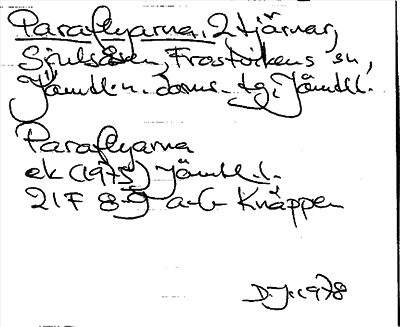 Paraflyarna, 2 tjärnar,
Sjulsåsen, Frostvikens sn,
Jämtl. n. doms. tg, Jämtl.
Paraflyarna
ek (1975) Jämtl. l.
21F 8-9 a-b Knäppen
D.J. 1978